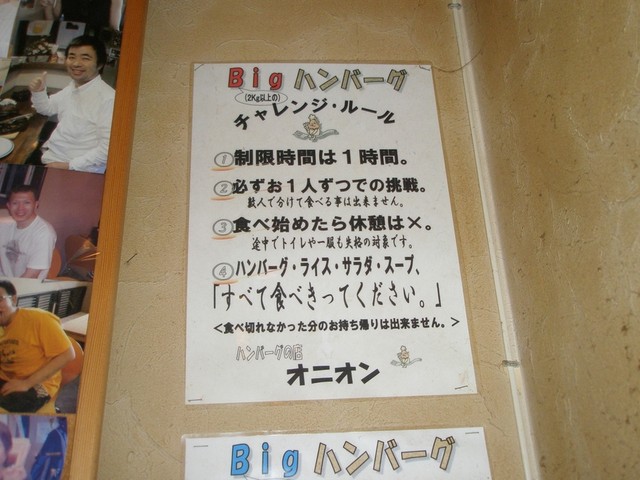 Big ハンバーグ
(2Kg以上の)
チャレンジ・ルール
①制限時間は1時間。
②必ずお1人ずつでの挑戦。
数人で分けて食べる事は出来ません。
③食べ始めたら休憩は×。
途中でトイレや一服も失格の対象です。
④ハンバーグ・ライス・サラダ・スープ、
「すべて食べきってください。」
<食べ切れなかった分のお持ち帰りは出来ません。>
ハンバーグの店
オニオン
Big ハンバーグ